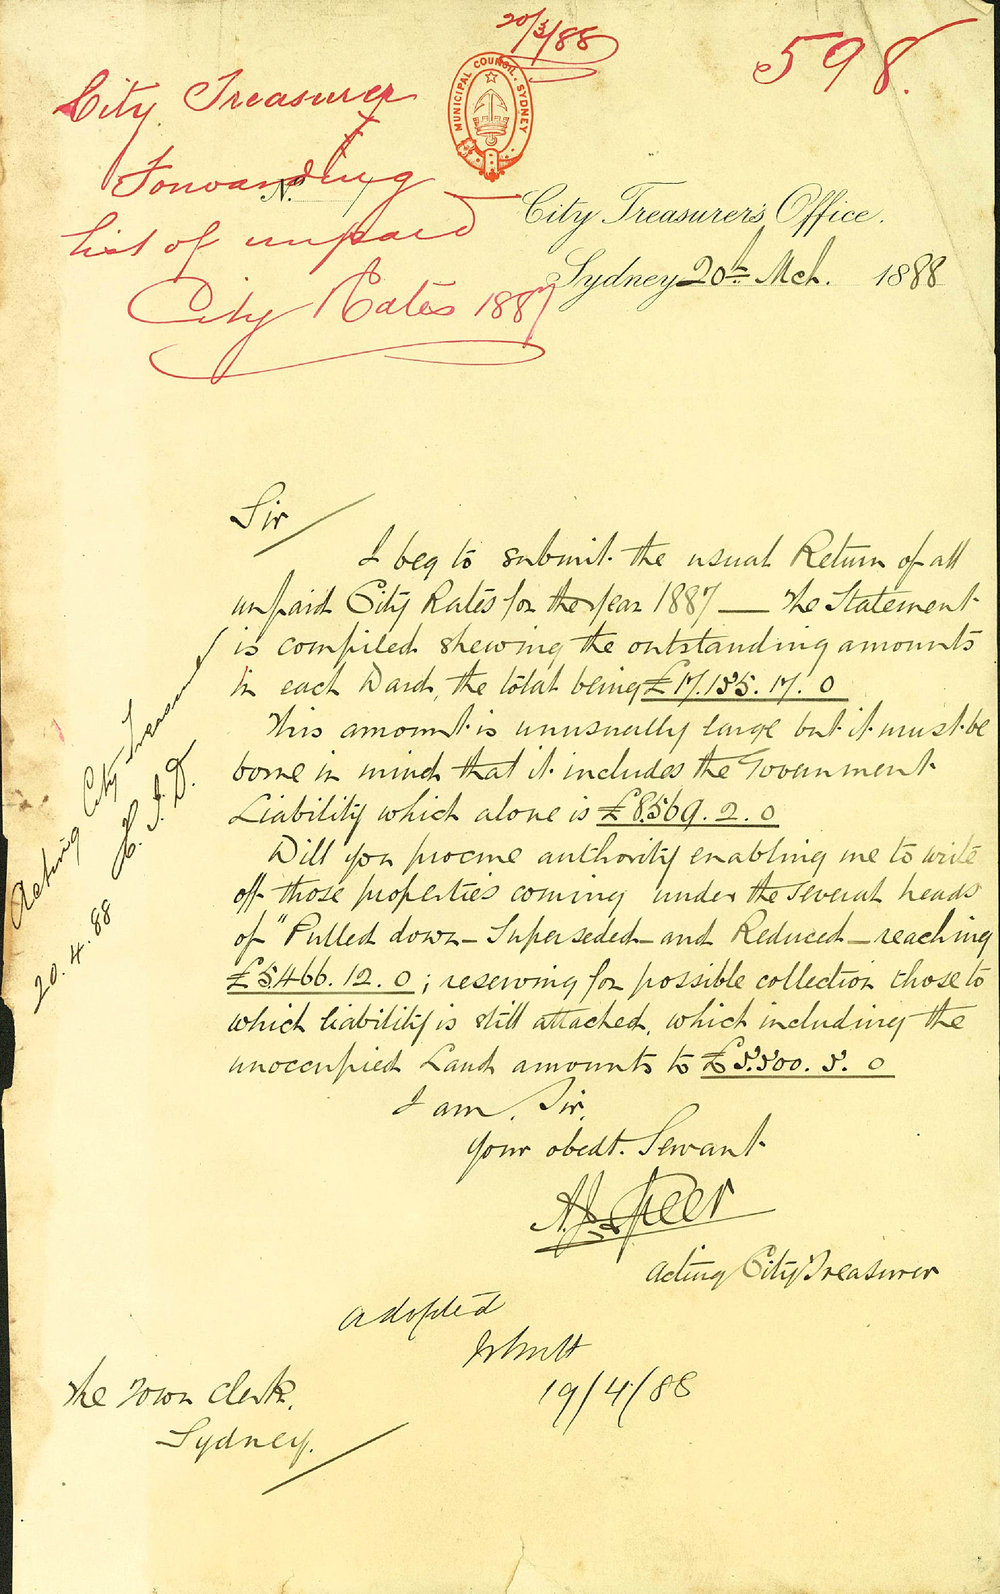 20/3/88
598.
City Treasurer
Forwarding
list of unpaid
City Rates 1887
MUNICIPAL COUNCIL. SYDNEY
No.
City Treasurer's Office.
Sydney 20th Mch. 1888
Sir
I beg to submit the usual Return of all
unpaid City Rates for the year 1887 — The Statement
is compiled shewing the outstanding amounts
in each Ward, the total being £17.135.17.0
This amount is unusually large but it must be
borne in mind that it includes the Government
Liability which alone is £8.569.2.0
Will you procure authority enabling me to write
off those properties coming under the several heads
of "Pulled down – Superseded – and Reduced – reaching
£5.466.12.0; reserving for possible collection those to
which liability is still attached, which including the
unoccupied Land amounts to £3.500.5.0
I am, Sir,
Your obedt. Servant
A.J. Speer
Acting City Treasurer
Adopted
19/4/88
The Town Clerk,
Sydney.
Acting City Treasurer
20.4.88